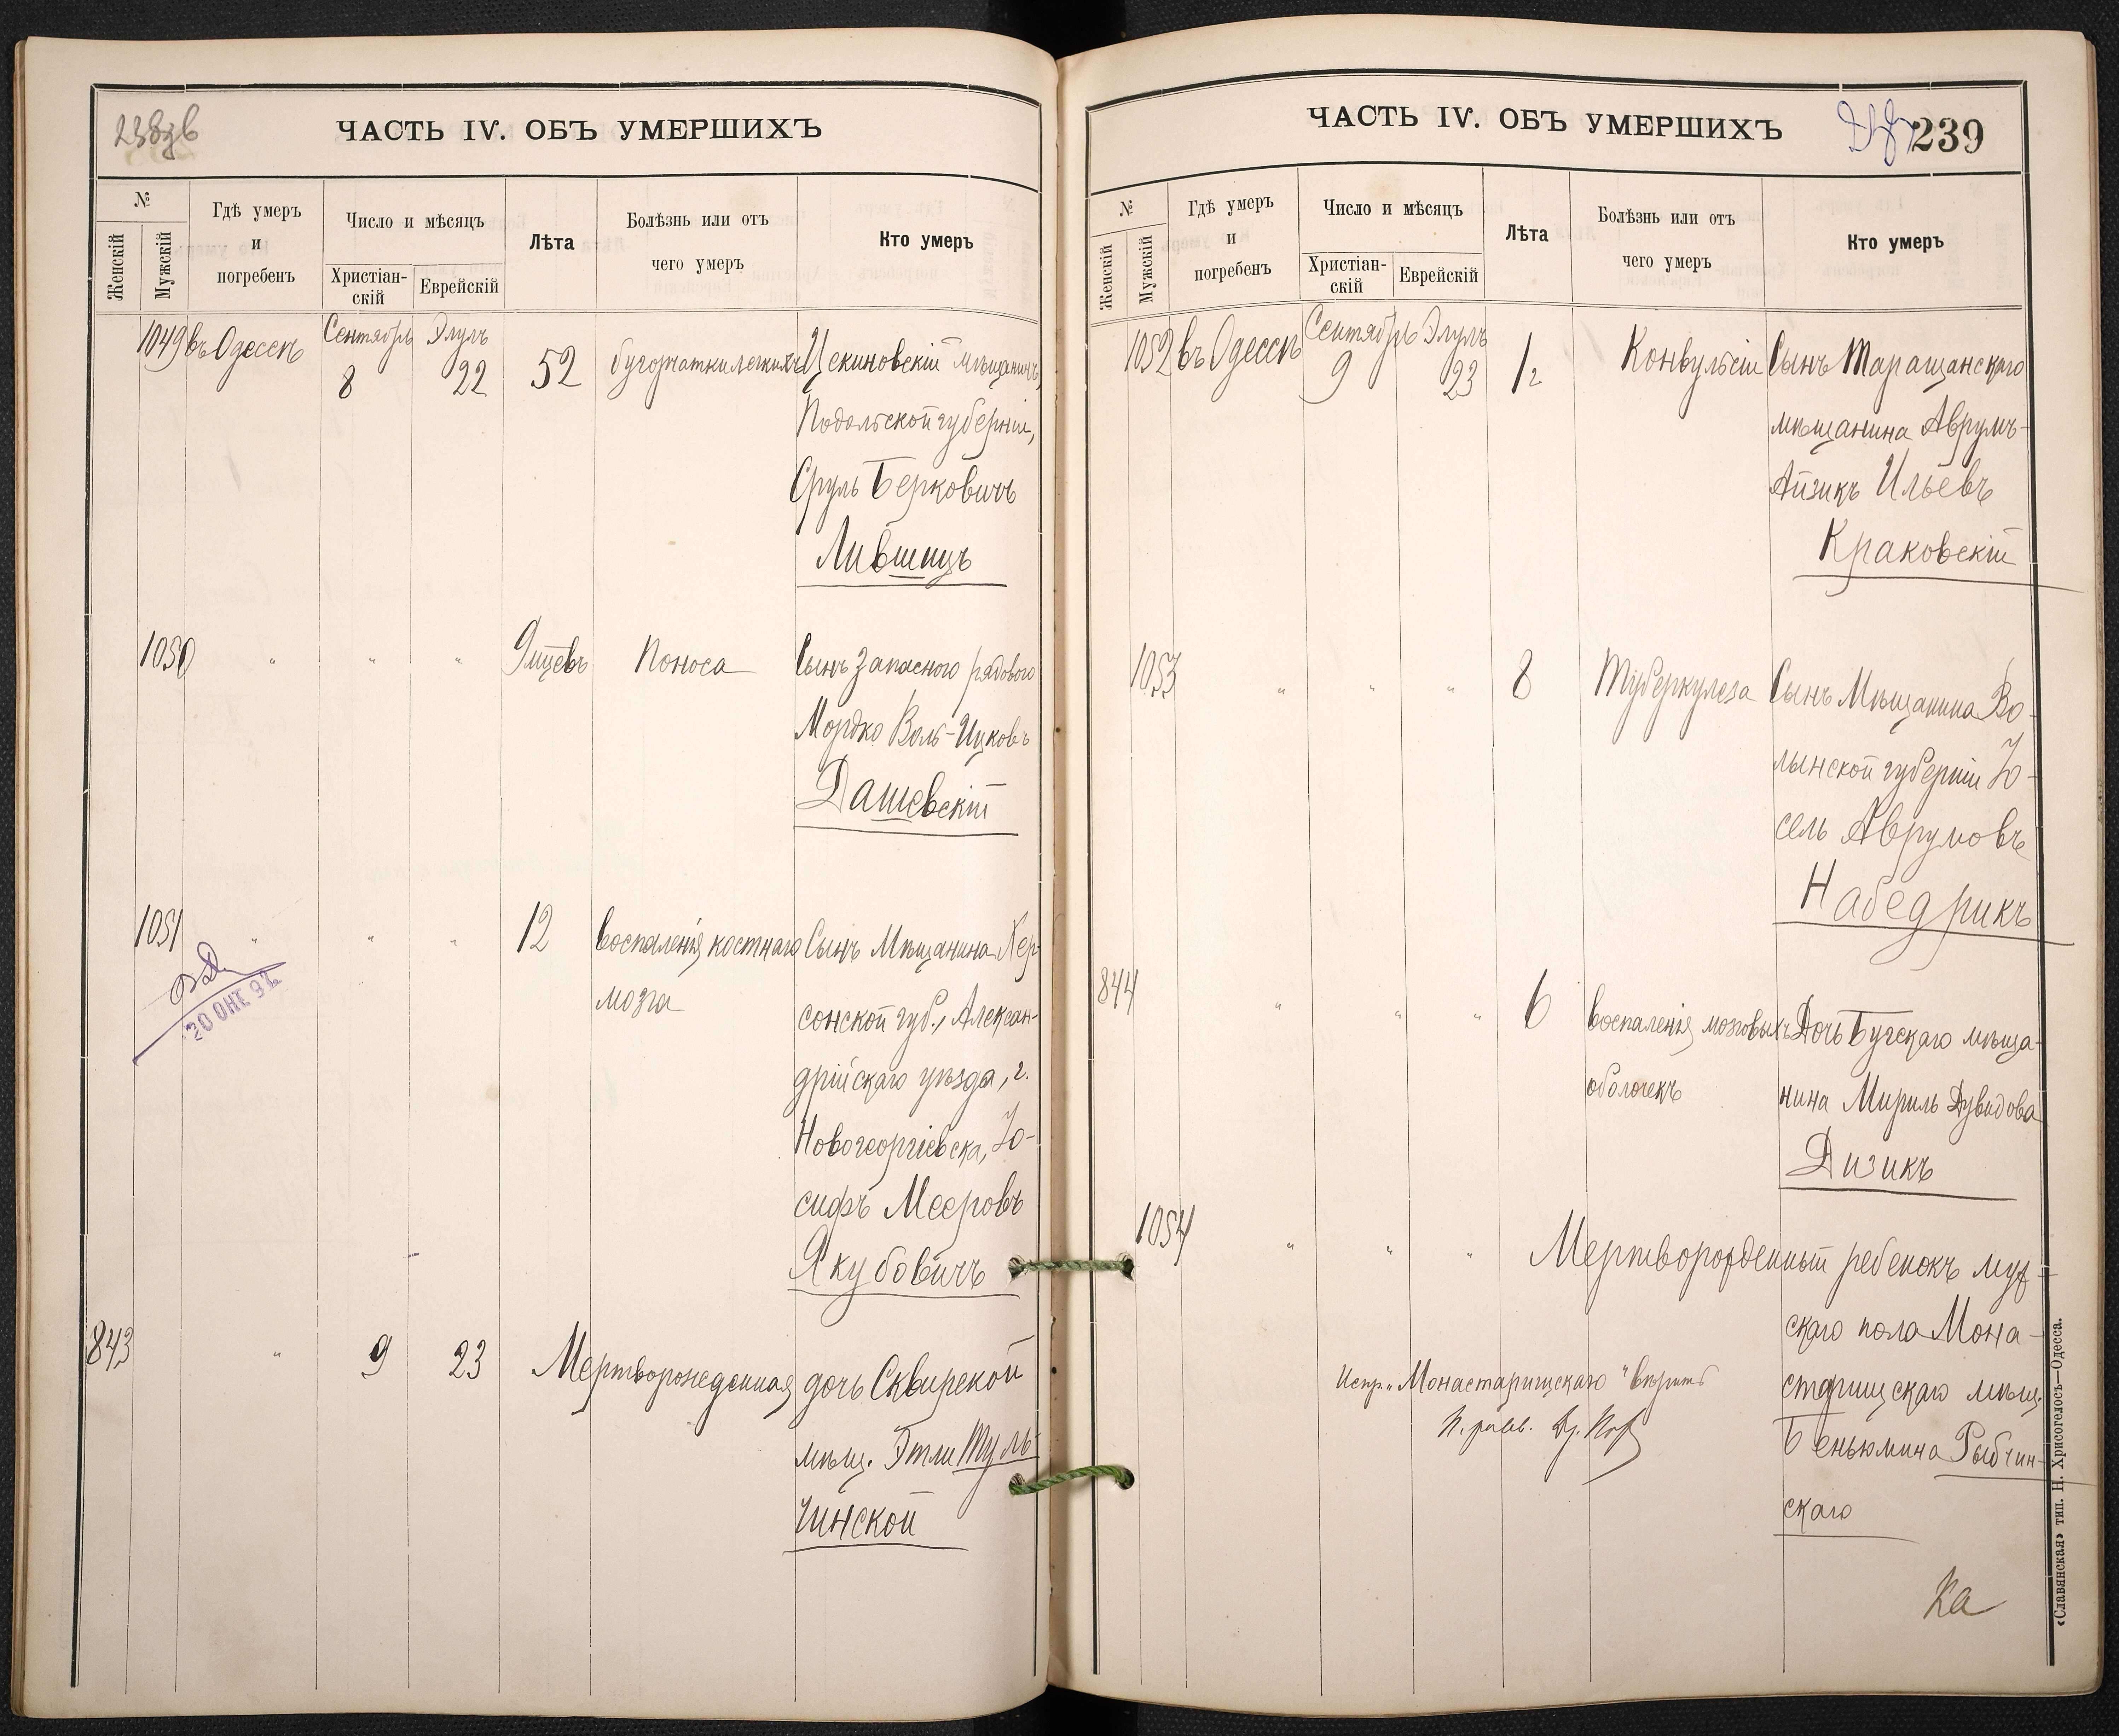 238об
ЧАСТЬ IV. ОБЪ УМЕРШИХЪ
№
Женскій
Мужскій
Гдѣ умеръ
и
погребенъ
Число и мѣсяцъ
Христіан-
скій
Еврейскій
Лѣта
Болѣзнь или отъ
чего умеръ
Кто умеръ
1049 въ Одессѣ Сентябрь 8 Элулъ 22 52 бугорчатки легкихъ Цекиновскій мѣщанинъ,
Подольской губерніи,
Сруль Берковичъ
Лившицъ
1050 " " " 9 мцевъ Поноса Сынъ запасного рядового
Мордко Воль-Ицковъ
Дашевскій
1051 " " " 12 воспаленія костнаго Сынъ Мѣщанина Хер-
мозга
сонской губ., Алексан-
дрійскаго уѣзда, г.
Новогеоргіевска, Іо-
сифъ Мееровъ
Якубовичъ
20 ОКТ 92
843 " 9 23 Мертворожденная дочь Сквирской
мѣщ. Этли Туль-
чинской
ЧАСТЬ IV. ОБЪ УМЕРШИХЪ
239
№
Женскій
Мужскій
Гдѣ умеръ
и
погребенъ
Число и мѣсяцъ
Христіан-
скій
Еврейскій
Лѣта
Болѣзнь или отъ
чего умеръ
Кто умеръ
1052 въ Одессѣ Сентябрь 9 Элулъ 23 1 г Конвульсіи Сынъ Таращанскаго
мѣщанина Аврумъ-
Айзикъ Ильевъ
Краковскій
1053 " " " 8 Туберкулеза Сынъ Мѣщанина Во-
лынской губерніи Іо-
сель Аврумовъ
Набедрикъ
844 " " " 6 воспаленія мозговыхъ Дочь Бугскаго мѣща-
оболочекъ
нина Мириль Дувидова
Дизикъ
1054 " " " Мертворожденный ребенокъ муж-
скаго пола Мона-
стырищскаго мѣщ.
Беньюмина Рыбчин-
скаго
Испр. „Монастарищскаго" вѣрить
П. равв.
Ка
«Славянская» тип. Н. Хрисогелосъ—Одесса.